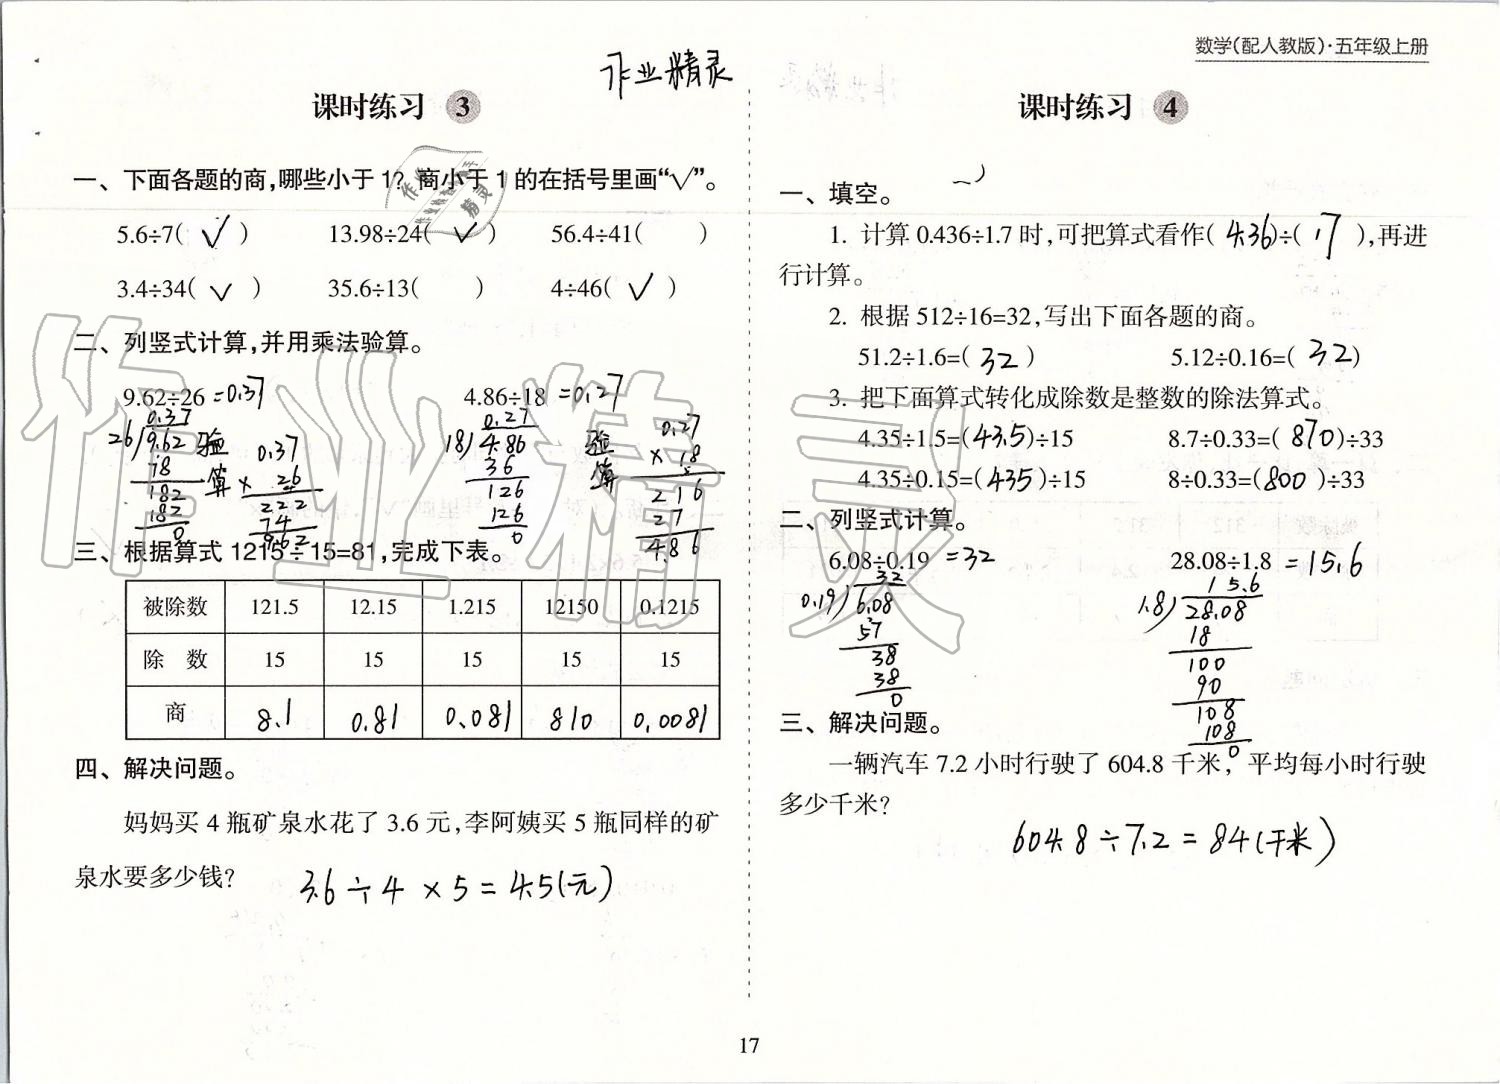 数学(配人教版)·五年级上册
作业精灵
课时练习 3
一、下面各题的商,哪些小于1?商小于1的在括号里画“√”。
5.6÷7( √ ) 13.98÷24( √ ) 56.4÷41( )
3.4÷34( √ ) 35.6÷13( ) 4÷46( √ )
二、列竖式计算,并用乘法验算。
9.62÷26 =0.37 4.86÷18 =0.27
0.37 0.27
26)9.62 验算 0.37 18)4.86 验算 0.27
78 × 26 36 × 18
182 222 126 216
182 74 126 27
0 9.62 0 4.86
三、根据算式1215÷15=81,完成下表。
被除数 121.5 12.15 1.215 12150 0.1215
除 数 15 15 15 15 15
商 8.1 0.81 0.081 810 0.0081
四、解决问题。
妈妈买4瓶矿泉水花了3.6元,李阿姨买5瓶同样的矿
泉水要多少钱?
3.6÷4×5=4.5(元)
课时练习 4
一、填空。
1. 计算0.436÷1.7时,可把算式看作( 4.36 )÷( 17 ),再进
行计算。
2. 根据512÷16=32,写出下面各题的商。
51.2÷1.6=( 32 ) 5.12÷0.16=( 32 )
3. 把下面算式转化成除数是整数的除法算式。
4.35÷1.5=( 43.5 )÷15 8.7÷0.33=( 870 )÷33
4.35÷0.15=( 435 )÷15 8÷0.33=( 800 )÷33
二、列竖式计算。
6.08÷0.19 =32 28.08÷1.8 =15.6
32 15.6
0.19)6.08 1.8)28.08
57 18
38 100
38 90
0 108
108
0
三、解决问题。
一辆汽车7.2小时行驶了604.8千米,平均每小时行驶
多少千米?
604.8÷7.2=84(千米)
17
作业精灵